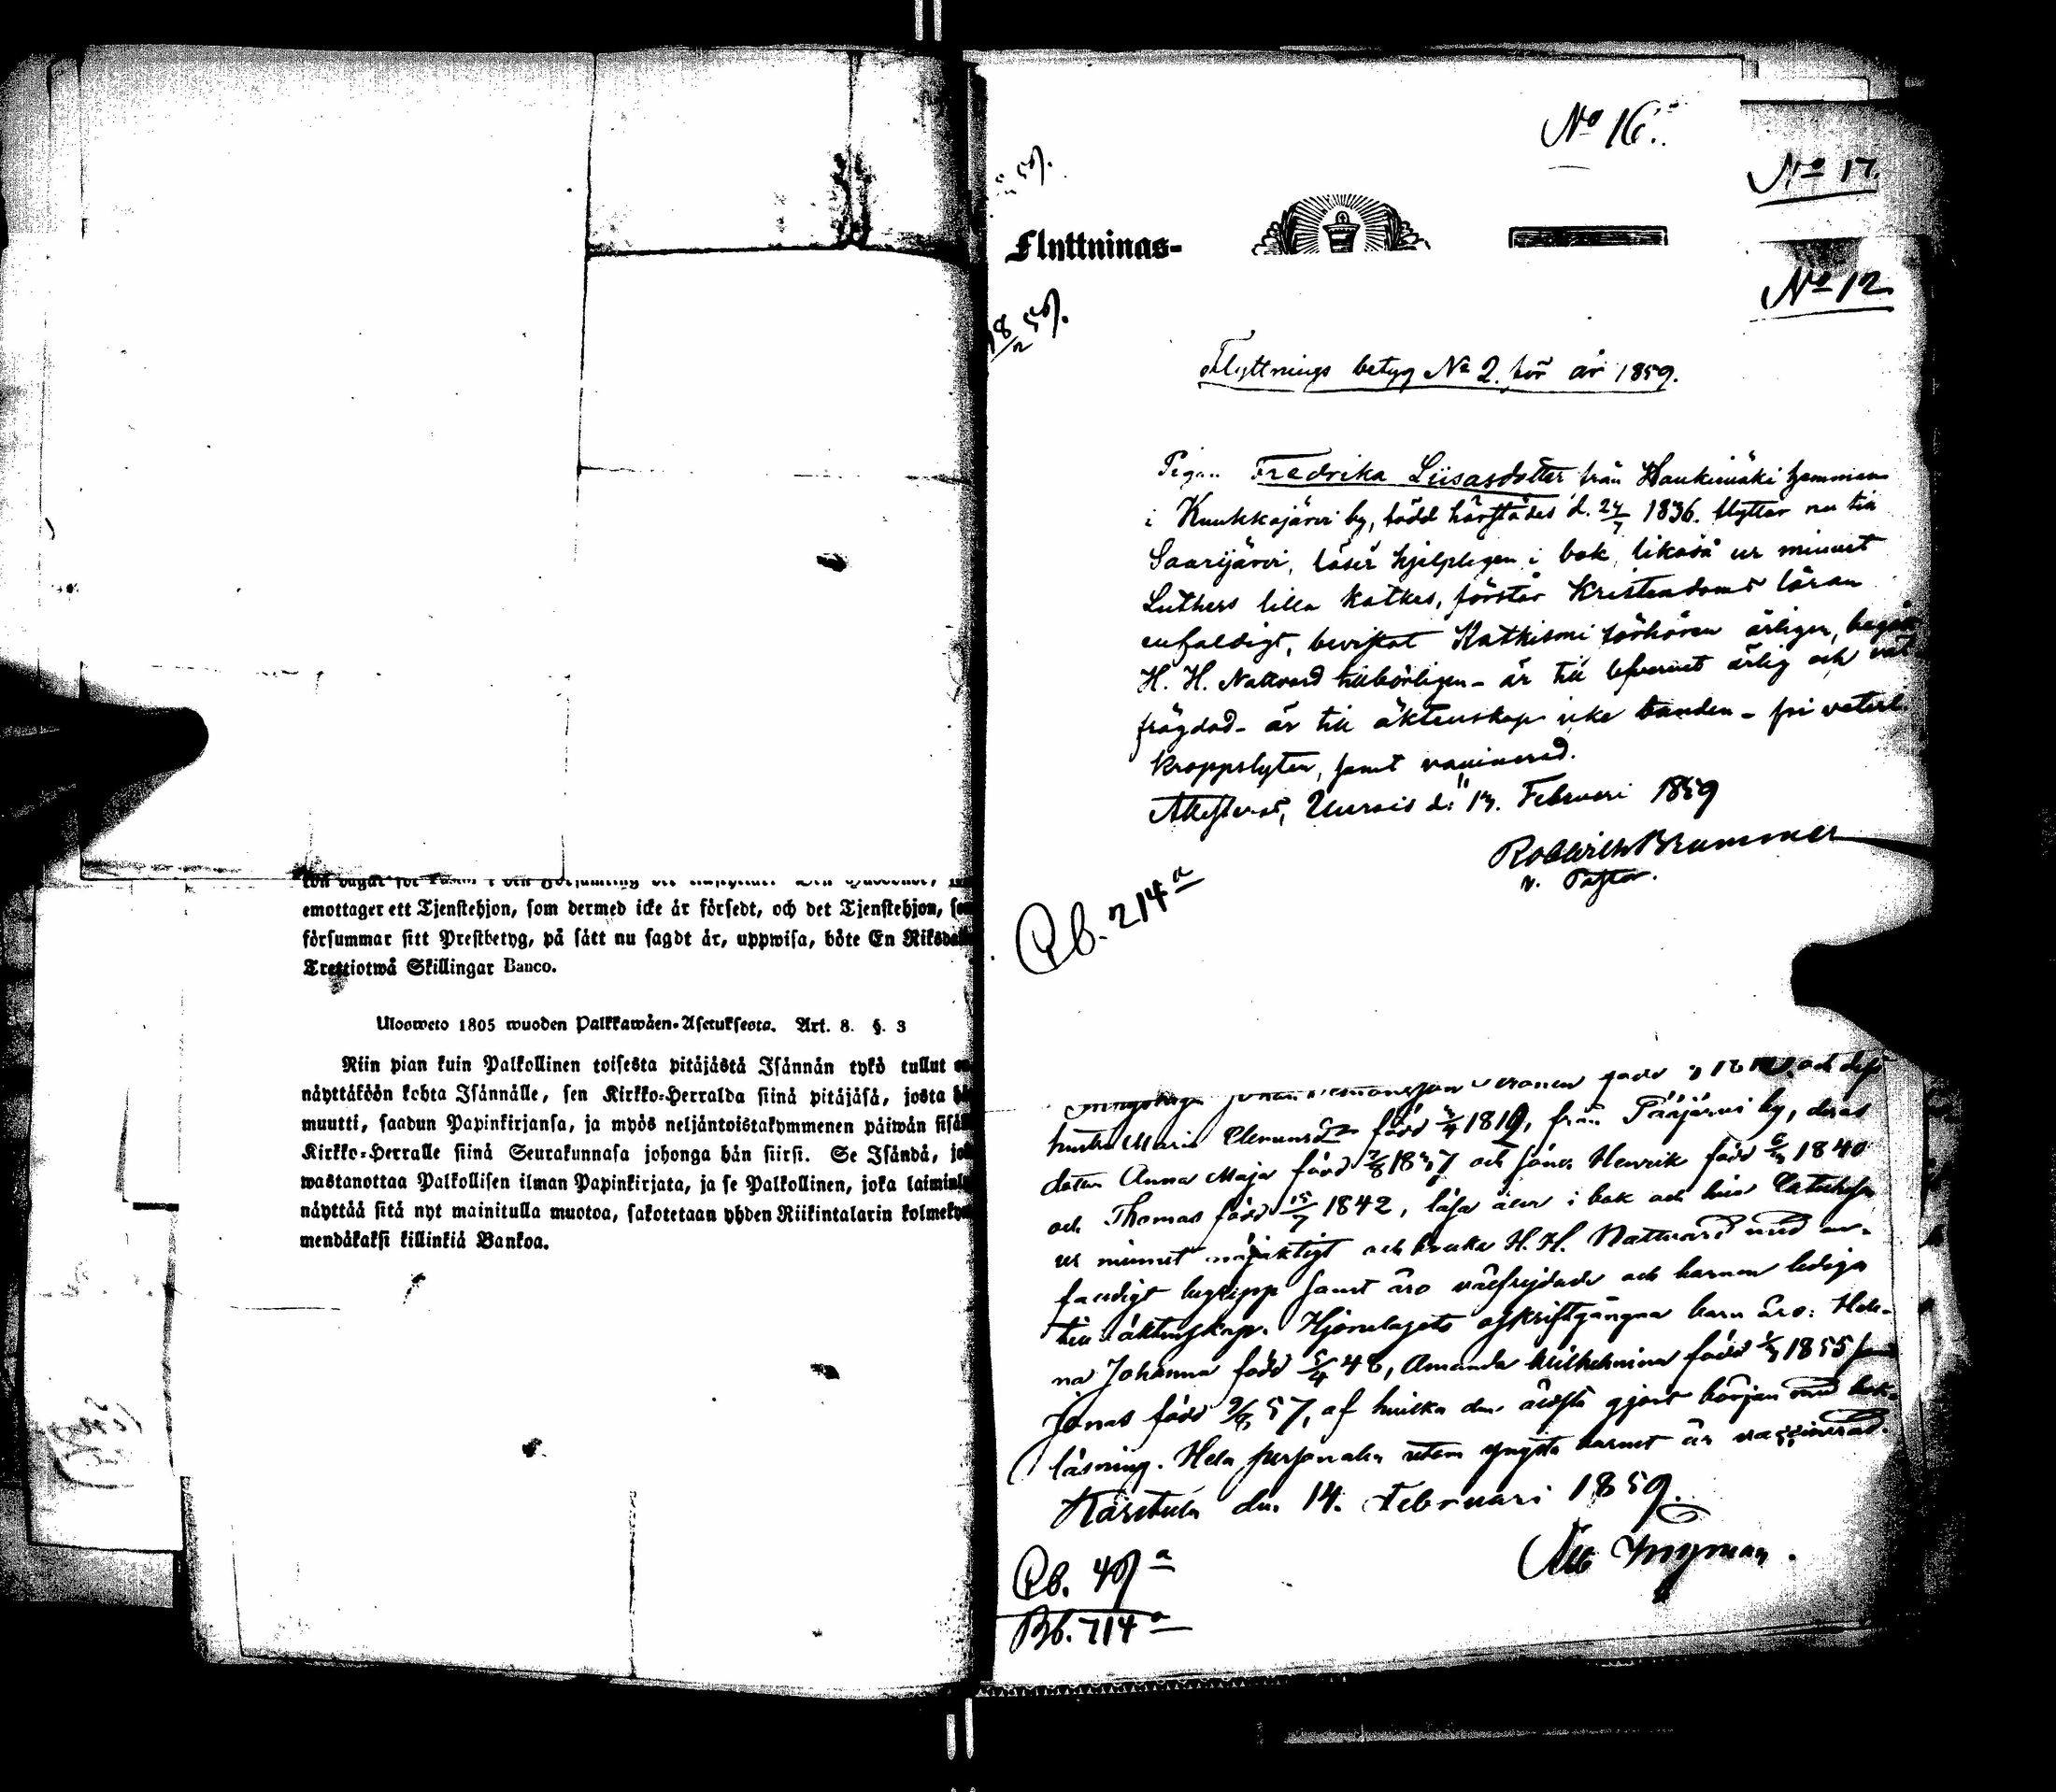 emottager ett Tjenstehjon, som dermed icke är försedt, och det Tjenstehjon,
försummar sitt Prestbetyg, på sätt nu sagdt är, uppwisa, böte En
Trettiotwå Skillingar Banco.
Ulosweto 1805 wuoden Palkkawäen-Asetuksesta. Art. 8. §. 3
Niin pian kuin Palkollinen toisesta pitäjästä Isännän tykö tullut
näyttäköön kohta Isännälle, sen Kirkko-Herralda siinä pitäjäsä, josta
muutti, saadun Papinkirjansa, ja myös neljäntoistakymmenen päiwän
Kirkko-Herralle siinä Seurakunnasa johonga hän siirsi. Se Isändä,
wastanottaa Palkollisen ilman Papinkirjata, ja se Palkollinen, joka
näyttää sitä nyt mainitulla muotoa, sakotetaan yhden Riikintalarin
mendäkaksi killinkiä Bankoa.
No 16.
No 17.
Flyttnings-
No 12
Flyttnings betyg No 2. för år 1859.
Pigan Fredrika Liisasdotter från Haukimäki hemman
i Kuukkajärvi by, född härstädes d. 24/7 1836. flyttar nu till
Saarijärvi, läser hjelpligen i bok, likaså ur minnet
Luthers lilla katkes, förstår Kristendoms läran
enfaldigt, bevistat Katkismi förhören årligen, begår
H. H. Nattvard tillbörligen - är till lefvernet ärlig och väl
frägdad - är till äktenskap icke bunden - fri
kroppslyten, samt vaccinerad.
Attesterar, Uurais d. 13. Februari 1859
Brummer
v. Pastor.
Qb. 214 a
hustru Maria född 1819, från Pääjärvi by, deras
dotter Anna Maja född 1837 och söner Henrik född 1840
och Thomas född 15/7 1842, läsa i bok och
ur minnet och bruka H. H. Nattvard med en-
faldigt begrepp samt äro välfrejdade och barnen lediga
till äktenskap. Hjonelagets oskriftgångna barn äro: Hele-
na Johanna född 5/4 48, Amanda Wilhelmina född 1855
Jonas född 57, af hvilka den äldsta gjort början med bok-
läsning. Hela personalen utom yngsta barnet är vaccinerad.
Karstula den 14. Februari 1859.
Qb.
Bb. 714 a